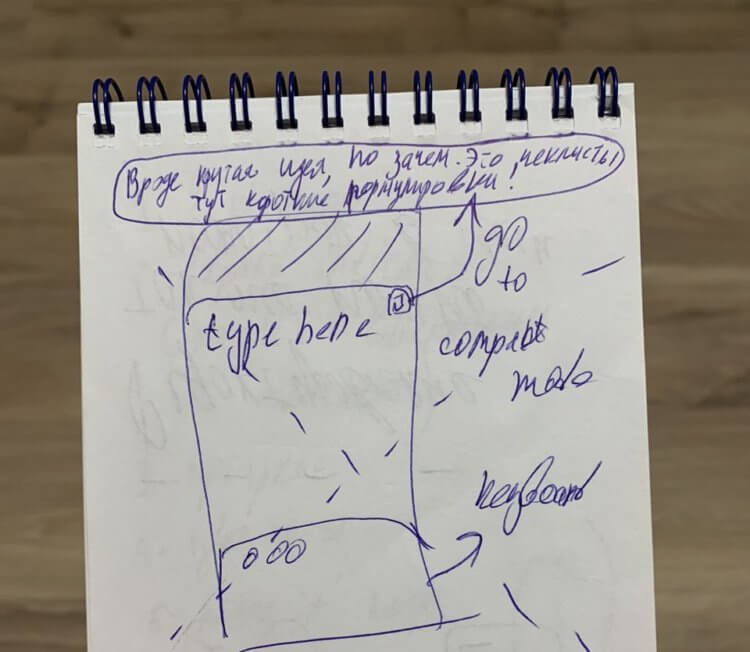 Вроде крутая идея, но зачем. Это чеклисты,
тут короткие формулировки!
go
to
type here
compakt
mode
keyboard